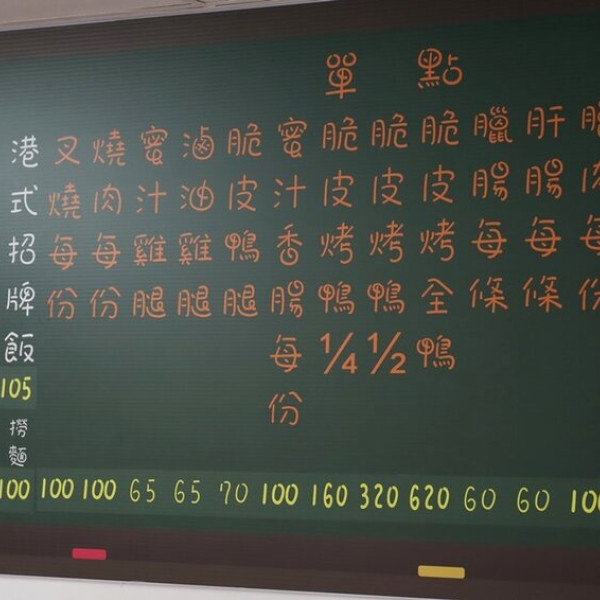 單點
港式招牌飯
105
撈麵
100
叉燒每份
100
燒肉每份
100
蜜汁雞腿
65
滷油雞腿
65
脆皮鴨腿
70
蜜汁香腸每份
100
脆皮烤鴨1/4
160
脆皮烤鴨1/2
320
脆皮烤全鴨
620
臘腸每條
60
肝腸每條
60